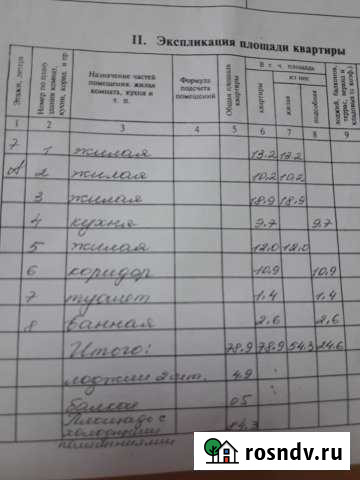 II. Экспликация площади квартиры
Этажи, литера
Номер по плану
Назначение частей помещения: жилая комната, кухня и т. п.
Формула подсчета помещений
Общая площадь квартиры
В т. ч. площадь
из нее
квартиры
жилая
подсобная
лоджий, балконов,
1 2 3 4 5 6 7 8 9
7 1 жилая 13.2 13.2
А 2 жилая 10.2 10.2
3 жилая 18.9 18.9
4 кухня 9.7 9.7
5 жилая 12.0 12.0
6 коридор 10.9 10.9
7 туалет 1.4 1.4
8 ванная 2.6 2.6
Итого: 78.9 78.9 54.3 24.6
лоджии 2 шт. 4.9
балкон 0.5
Площадь с холодными помещениями 84.3
rosndv.ru